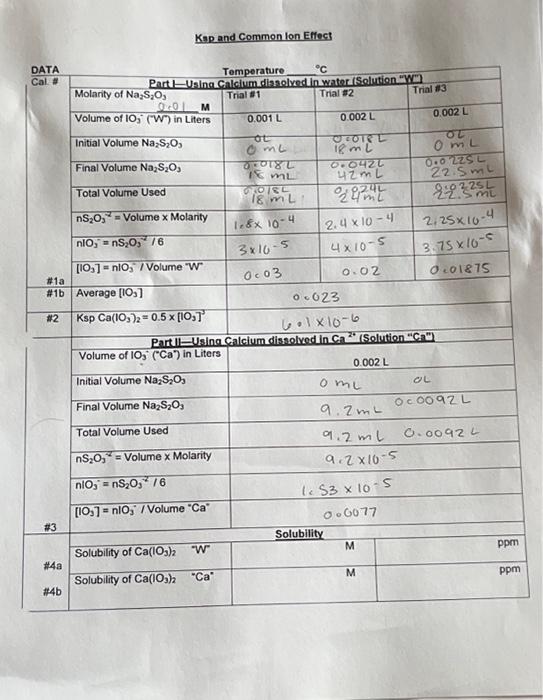 Ksp and Common Ion Effect
DATA
Temperature °C
Cal. # Part I—Using Calcium dissolved in water (Solution "W")
Molarity of Na₂S₂O₃ 0.01 M Trial #1 Trial #2 Trial #3
Volume of IO₃⁻ ("W") in Liters 0.001 L 0.002 L 0.002 L
Initial Volume Na₂S₂O₃ 0L 0 mL 0.018L 18 mL 0L 0 mL
Final Volume Na₂S₂O₃ 0.018L 18 mL 0.042L 42mL 0.0225L 22.5mL
Total Volume Used 0.018L 18mL 0.024L 24mL 0.0225L 22.5mL
nS₂O₃⁻² = Volume x Molarity 1.8x 10-4 2.4x10-4 2.25x10-4
nIO₃⁻ = nS₂O₃⁻² / 6 3x10-5 4x10-5 3.75x10-5
#1a [IO₃⁻] = nIO₃⁻ / Volume "W" 0.03 0.02 0.01875
#1b Average [IO₃⁻] 0.023
#2 Ksp Ca(IO₃)₂ = 0.5 x [IO₃⁻]³ 6.1x10-6
Part II—Using Calcium dissolved in Ca²⁺ (Solution "Ca")
Volume of IO₃⁻ ("Ca") in Liters 0.002 L
Initial Volume Na₂S₂O₃ 0 mL 0L
Final Volume Na₂S₂O₃ 9.2mL 0.0092L
Total Volume Used 9.2mL 0.0092L
nS₂O₃⁻² = Volume x Molarity 9.2x10-5
nIO₃⁻ = nS₂O₃⁻² / 6 1.53x10-5
#3 [IO₃⁻] = nIO₃⁻ / Volume "Ca" 0.0077
Solubility
#4a Solubility of Ca(IO₃)₂ "W" M ppm
#4b Solubility of Ca(IO₃)₂ "Ca" M ppm